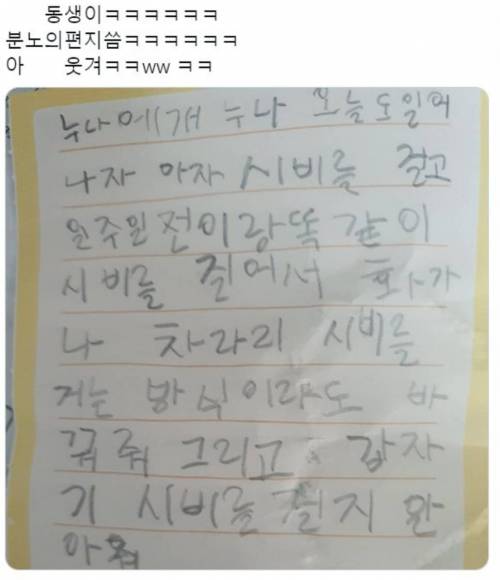 동생이ㅋㅋㅋㅋㅋㅋ
분노의편지씀ㅋㅋㅋㅋㅋㅋ
아 웃겨ㅋㅋww ㅋㅋ
누나에개 누나 오늘도일어
나자 마자 시비를 걸고
일주일전이랑똑같이
시비를 질어서 화가
나 차라리 시비를
거는 방식이라도 바
꿔줘 그리고 갑자
기 시비를 걸지 안
아